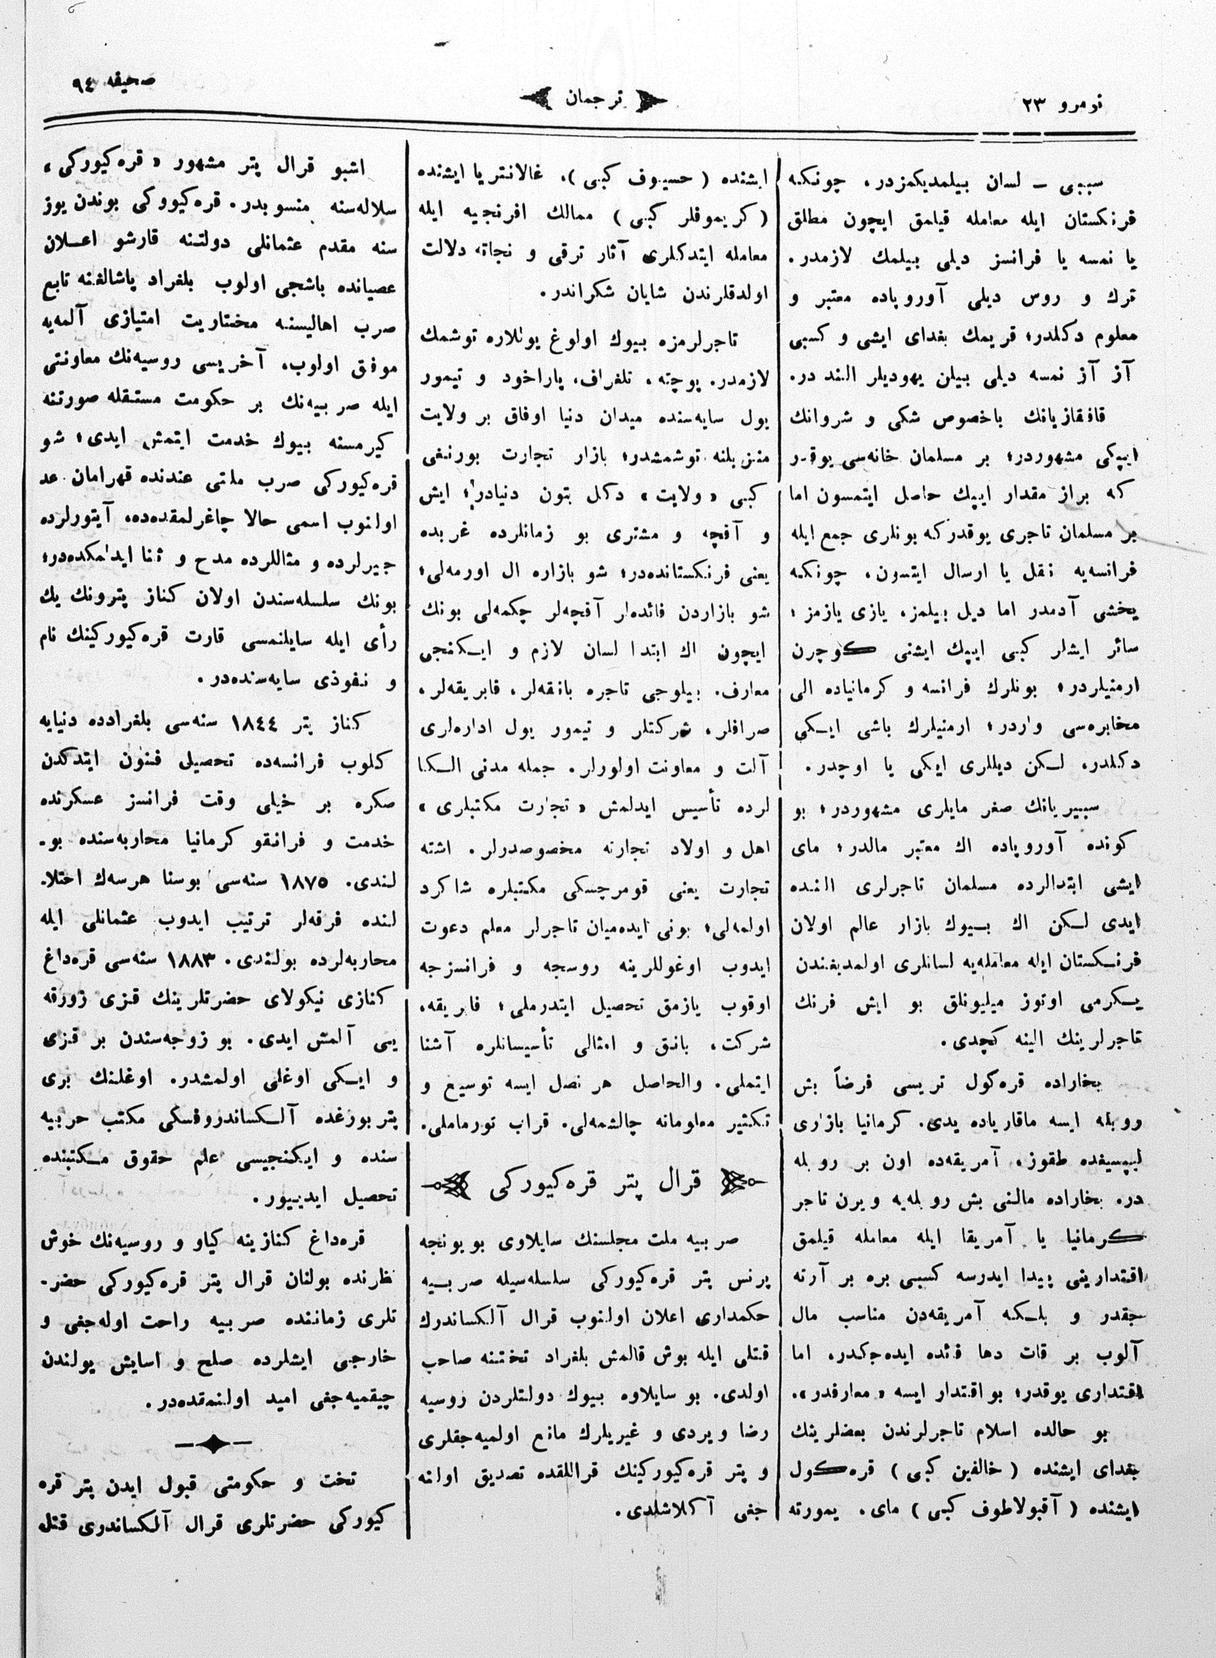 نومرو ٢٣
ترجمان
صحيفه ٩٤
سببى ــ لسان بيلمديكمزدر. چونكه
فرنكستان ايله معامله قيلمق ايچون مطلق
يا نمسه يا فرانسز ديلى بيلمك لازمدر.
ترك و روس ديلى آوروپاده معتبر و
معلوم دكلدر؛ قريمك بغداى ايشى و كسبى
آز آز نمسه ديلى بيلن يهوديلر النده در.
قافقازيانك باخصوص شكى و شروانك
ايپكى مشهوردر؛ بر مسلمان خانه‌سى يوقدر
كه براز مقدار ايپك حاصل ايتمسون اما
بر مسلمان تاجرى يوقدركه بونلرى جمع ايله
فرانسه‌يه نقل يا ارسال ايتسون، چونكه
يخشى آدمدر اما ديل بيلمز، يازى يازمز؛
سائر ايشلر كبى ايپك ايشنى كوچرن
ارمنيلردر؛ بونلرك فرانسه و كرمانياده الى
مخابره‌سى واردر؛ ارمنيلرك باشى ايكى
دكلدر، لكن ديللرى ايكى يا اوچدر.
سيبيريانك صغر مايلرى مشهوردر؛ بو
كونده آوروپاده اك معتبر مالدر؛ ماى
ايشى ابتدالرده مسلمان تاجرلرى النده
ايدى لكن اك بيوك بازار عالم اولان
فرنكستان ايله معامله‌يه لسانلرى اولمديغندن
يكرمى اوتوز ميليونلق بو ايش فرنك
تاجرلرينك الينه كچدى.
بخاراده قره‌كول تريسى فرضاً بش
روبله ايسه ماقارياده يدى، كرمانيا بازارى
ليپسيغده طقوز، آمريقه‌ده اون بر روبله
در. بخاراده مالنى بش روبله‌يه ويرن تاجر
كرمانيا يا آمريقا ايله معامله قيلمق
اقتدارينى پيدا ايدرسه كسبى بره بر آرته
جقدر و بلكه آمريقه‌دن مناسب مال
آلوب بر قات دها فائده ايده‌جكدر، اما
اقتدارى يوقدر؛ بو اقتدار ايسه «معارفدر».
بو حالده اسلام تاجرلرندن بعضلرينك
بغداى ايشنده (خالفين كبى) قره‌كول
ايشنده (آقبولاطوف كبى) ماى، يمورته
ايشنده (حسيوف كبى)، غالانتريا ايشنده
(كريموفلر كبى) ممالك افرنجيه ايله
معامله ايتدكلرى آثار ترقى و نجاة دلالت
اولدقلرندن شايان شكراندر.
تاجرلرمزه بيوك اولوغ يوللاره توشمك
لازمدر. پوچته، تلغراف، پاراخود و تيمور
يول سايه‌سنده ميدان دنيا اوفاق بر ولايت
منزيلنه توشمشدر؛ بازار تجارت بورنغى
كبى «ولايت» دكل بتون دنيادر؛ ايش
و آقچه و مشترى بو زمانلرده غربده
يعنى فرنكستانده‌در؛ شو بازاره ال اورمه‌لى؛
شو بازاردن فائده‌لر آقچه‌لر چكمه‌لى بونك
ايچون اك ابتدا لسان لازم و ايكنجى
معارف. بيلوجى تاجره بانقه‌لر، فابريقه‌لر،
صرافلر، شركتلر و تيمور يول اداره‌لرى
آلت و معاونت اولورلر. جمله مدنى الكا
لرده تأسيس ايدلمش «تجارت مكتبلرى»
اهل و اولاد تجارته مخصوصدرلر. اشته
تجارت يعنى قومرچسكى مكتبلره شاكرد
اولمه‌لى؛ بونى ايده‌ميان تاجرلر معلم دعوت
ايدوب اوغوللرينه روسجه و فرانسزجه
اوقوب يازمق تحصيل ايتدرملى؛ فابريقه،
شركت، بانق و امثالى تأسيساتلره آشنا
ايتملى. والحاصل هر نصل ايسه توسيع و
تكثير معلوماته چالشمه‌لى. قراب تورماملى.
قرال پتر قره‌كيوركى
صربيه ملت مجلسنك سايلاوى بويونجه
پرنس پتر قره‌كيوركى سلسله‌سيله صربيه
حكمدارى اعلان اولنوب قرال آلكساندرك
قتلى ايله بوش قالمش بلغراد تختنه صاحب
اولدى. بو سايلاوه بيوك دولتلردن روسيه
رضا ويردى و غيريلرك مانع اولميه‌جقلرى
و پتر قره‌كيوركينك قراللقده تصديق اولنه
جغى آكلاشلدى.
اشبو قرال پتر مشهور «قره‌كيوركى»
سلاله‌سنه منسوبدر. قره‌كيووكى بوندن يوز
سنه مقدم عثمانلى دولتنه قارشو اعلان
عصيانده باشجى اولوب بلغراد پاشالغنه تابع
صرب اهاليسنه مختاريت امتيازى آلمه‌يه
موفق اولوب، آخريسى روسيه‌نك معاونتى
ايله صربيه‌نك بر حكومت مستقله صورتنه
كيرمسنه بيوك خدمت ايتمش ايدى؛ شو
قره‌كيوركى صرب ملتى عندنده قهرامان عد
اولنوب اسمى حالا چاغرلمقده‌ده، آيتورلرده
جيرلرده و مثاللرده مدح و ثنا ايدلمكده‌در؛
بونك سلسله‌سندن اولان كناز پترونك يك
رأى ايله سايلنمسى قارت قره‌كيوركينك نام
و نفوذى سايه‌سنده‌در.
كناز پتر ١٨٤٤ سنه‌سى بلغرادده دنيايه
كلوب فرانسه‌ده تحصيل فنون ايتدكدن
صكره بر خيلى وقت فرانسز عسكرنده
خدمت و فرانقو كرمانيا محاربه‌سنده بو-
لندى. ١٨٧٥ سنه‌سى بوسنا هرسه‌ك اختلا-
لنده فرقه‌لر ترتيب ايدوب عثمانلى ايله
محاربه‌لرده بولندى. ١٨٨٣ سنه‌سى قره‌داغ
كنازى نيكولاى حضرتلرينك قزى زورقه
يى آلمش ايدى. بو زوجه‌سندن بر قزى
و ايكى اوغلى اولمشدر. اوغلنك برى
پتربورغده آلكساندروفسكى مكتب حربيه
سنده و ايكنجيسى علم حقوق مكتبنده
تحصيل ايدييور.
قره‌داغ كنازينه كياو و روسيه‌نك خوش
نظرنده بولنان قرال پتر قره‌كيوركى حضر-
تلرى زماننده صربيه راحت اوله‌جغى و
خارجى ايشلرده صلح و اسايش يولندن
چيقميه‌جغى اميد اولنمقده‌در.
تخت و حكومتى قبول ايدن پتر قره
كيوركى حضرتلرى قرال آلكساندرى قتل